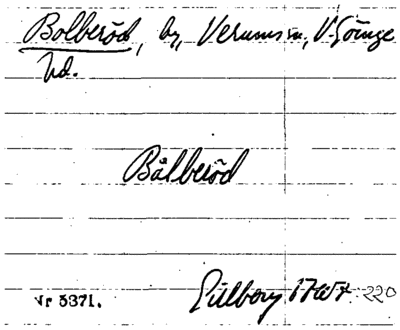 Bolberöd, by, Verums sn, V. Göinge
hd.
Bålberöd
Nr 5371.
Gillberg 220